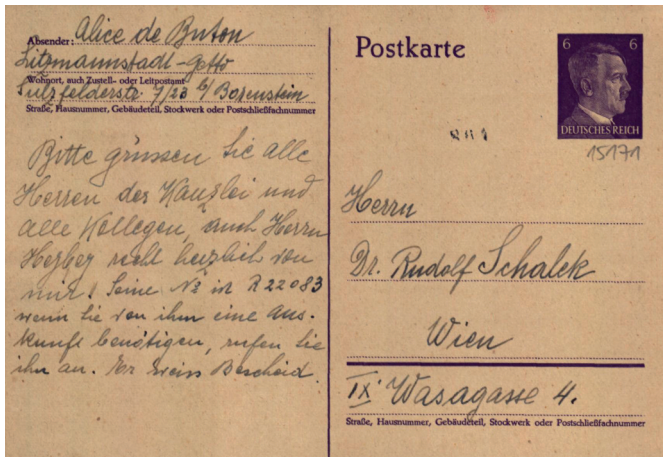 Absender: Alice de Buton
Litzmannstadt-Getto
Wohnort, auch Zustell- oder Leitpostamt
Sulzfelderstr. 7/23 b/Borenstein
Straße, Hausnummer, Gebäudeteil, Stockwerk oder Postschließfachnummer
Bitte grüssen Sie alle
Herren der Kanzlei und
alle Kollegen, auch Herrn
recht herzlich von
mir! Seine No ist R 22083
wenn Sie von ihm eine Aus-
kunft benötigen, rufen Sie
ihn an. Er weiss Bescheid.
Postkarte
6 6
DEUTSCHES REICH
15171
Herrn
Dr. Rudolf Schalek
Wien
IX. Wasagasse 4.
Straße, Hausnummer, Gebäudeteil, Stockwerk oder Postschließfachnummer